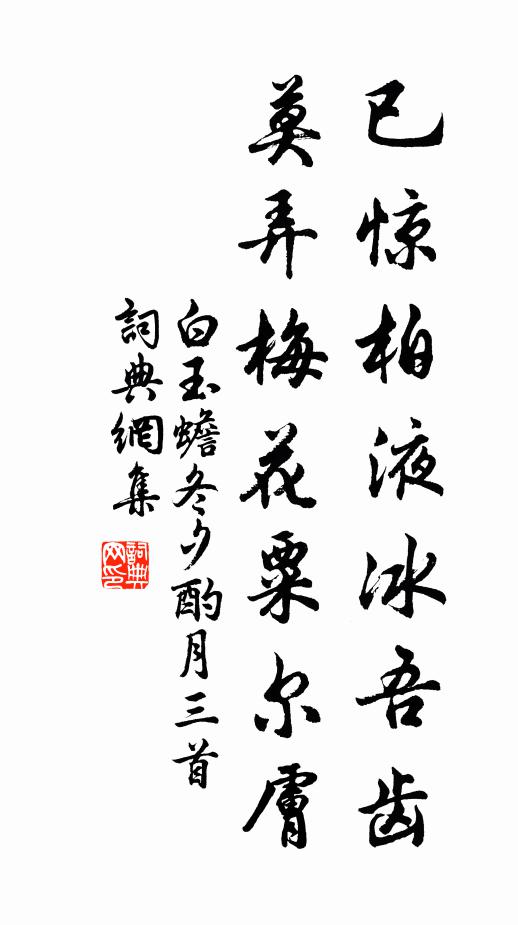 已惊柏液冰吾齿
莫弄梅花粟尔膚
白玉蟾冬夕酌月三首
詞典網集
詞典网印